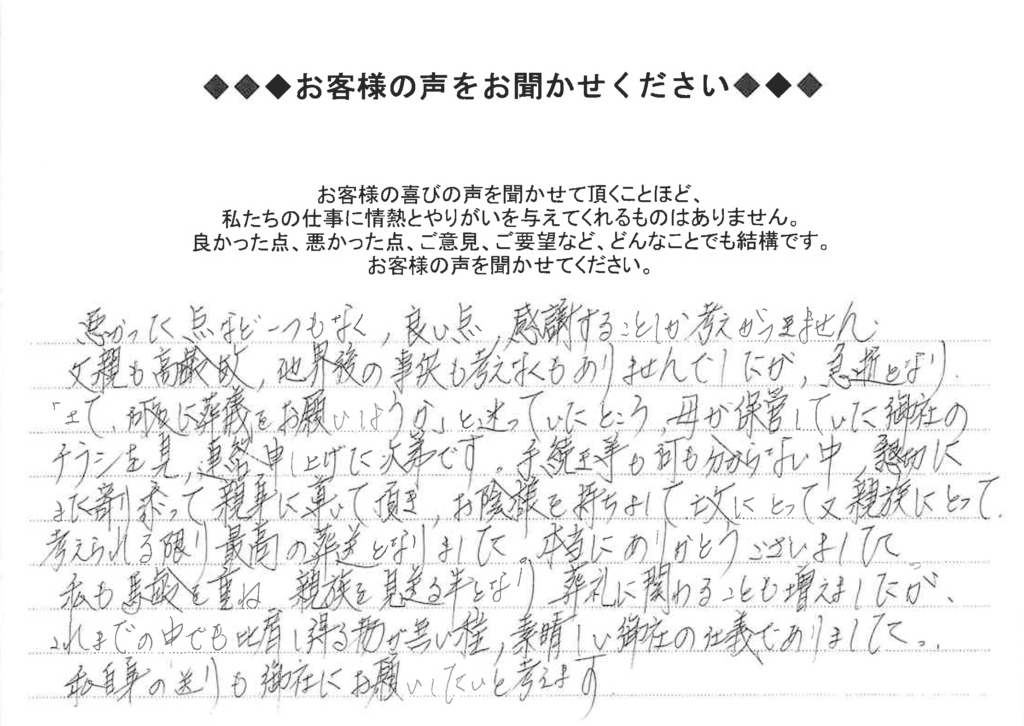 ◆◆◆お客様の声をお聞かせください◆◆◆
お客様の喜びの声を聞かせて頂くことほど、
私たちの仕事に情熱とやりがいを与えてくれるものはありません。
良かった点、悪かった点、ご意見、ご要望など、どんなことでも結構です。
お客様の声を聞かせてください。
悪かった点など一つもなく,良い点,感謝することしか考えつきません.
父親も高齢故,他界後の事供も考えなくもありませんでしたが,急逝となり.
「さて、何処に葬儀をお願いしようか」と迷っていたところ、母が保管していた御社の
チラシを見,連絡申し上げた次第です。手続き等も何も分からない中,懇切に
また寄り添って親身に導いて頂き,お陰様を持ちまして故にとって又親族にとって.
考えられる限り最高の葬送となりました。本当にありがとうございました
私も馬齢を重ね 親族を見送る年となり 葬礼に関わることも増えましたが、
これまでの中でも比肩し得る物が無い程,素晴しい御社の仕儀でありました.
私自身の送りも御社にお願いしたいと考えます